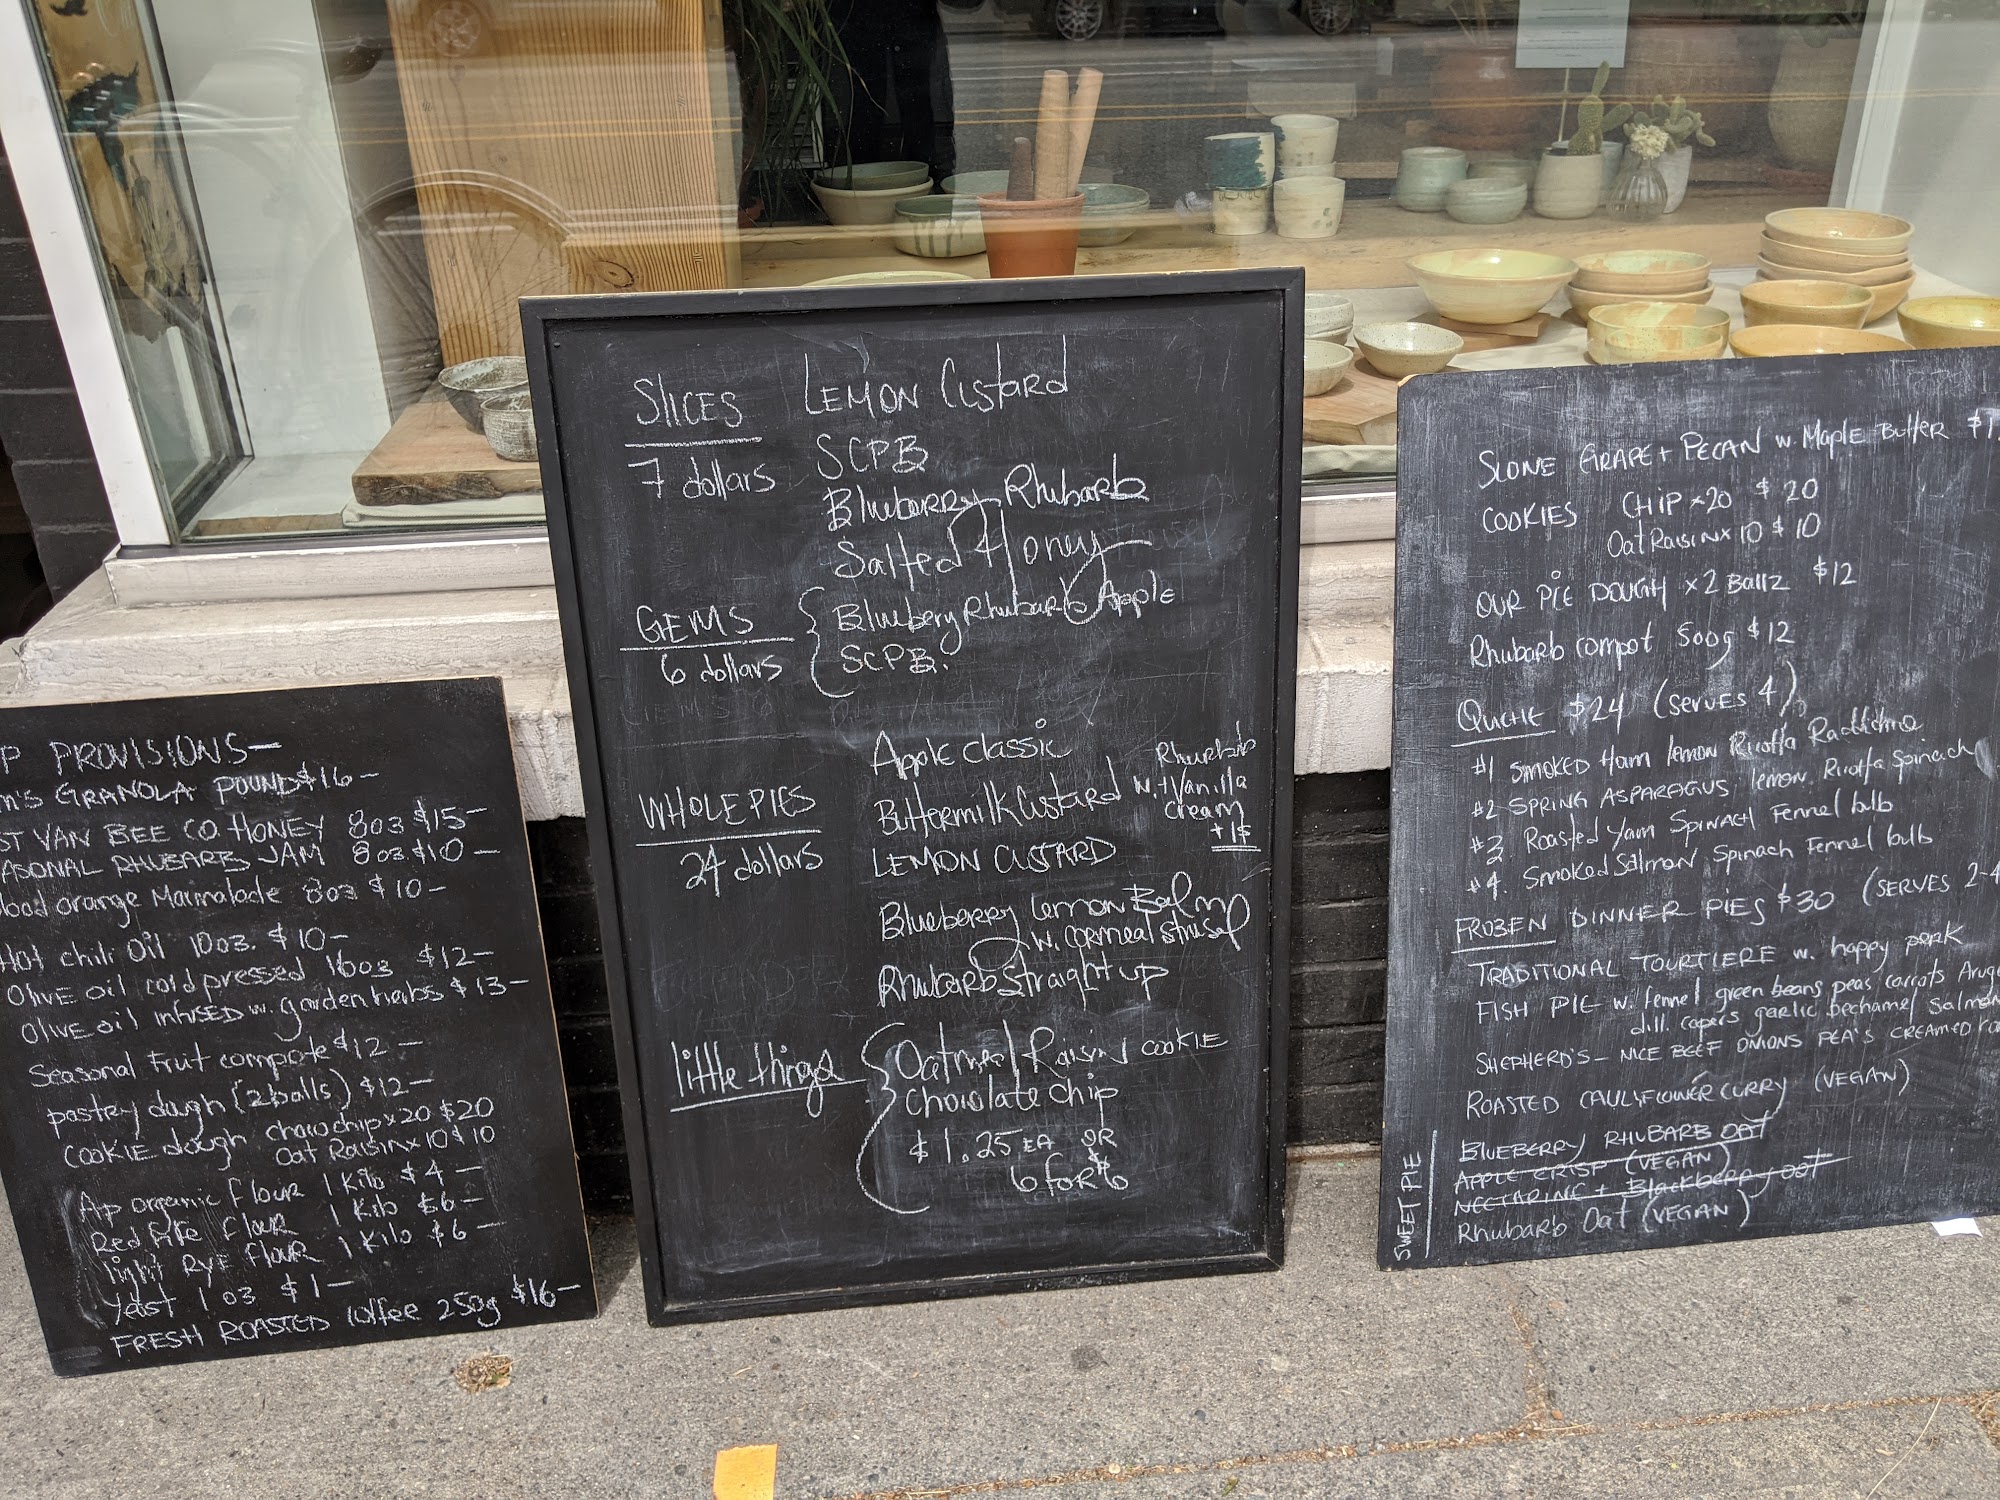 P PROVISIONS—
M'S GRANOLA POUND $16—
ST VAN BEE CO. HONEY 8oz $15—
ASONAL RHUBARB JAM 8oz. $10—
lood orange Marmalade 8oz $10—
Hot chili Oil 10oz. $10—
Olive oil cold pressed 16oz $12—
Olive oil infused w. garden herbs $13—
Seasonal Fruit compote $12—
pastry dough (2 balls) $12—
COOKIE dough chocochip x 20 $20
Oat Raisin x 10 $10
Ap organic Flour 1 Kilo $4—
Red Fife Flour 1 Kilo $6—
light Rye Flour 1 Kilo $6—
Yeast 1 oz $1—
FRESH ROASTED coffee 250g $16—
SLICES
7 dollars
LEMON CUSTARD
SCPB
Blueberry Rhubarb
Salted Honey
GEMS
6 dollars
Bluebery Rhubarb Apple
SCPB.
WHOLE PIES
24 dollars
Apple classic
Buttermilk Custard
Rhurbub
w. + Vanilla
cream
+ 1$
LEMON CUSTARD
Blueberry lemon Balm
w. cornmeal
Rhubarb straight up
little things
Oatmeal Raisin COOKIE
Chocolate chip
$1.25 EA OR
6 for $6
SLONE GRAPE + PECAN w. Maple Butter $1
COOKIES CHIP x 20 $20
Oat Raisin x 10 $10
OUR PIE DOUGH x 2 Ballz $12
Rhubarb compot 500g $12
QUICHE $24 (SERVES 4)
#1 SMOKED Ham lemon Ricotta
#2 SPRING ASPARAGUS, lemon, Ricotta Spinach
#3. Roasted Yam Spinach Fennel bulb
#4. Smoked Salmon Spinach Fennel bulb
FROZEN DINNER PIES $30 (SERVES 2-4
TRADITIONAL TOURTIERE w. happy pork
FISH PIE w. fennel green beans peas carrots Arug
dill. capers garlic bechamel Salmon
SHEPHERD'S — NICE BEEF ONIONS PEA'S CREAMED
ROASTED CAULIFLOWER CURRY (VEGAN)
SWEET PIE
BLUEBERRY RHUBARB OAT
APPLE CRISP (VEGAN)
NECTARINE + Blackberry OAT
Rhubarb Oat (VEGAN)